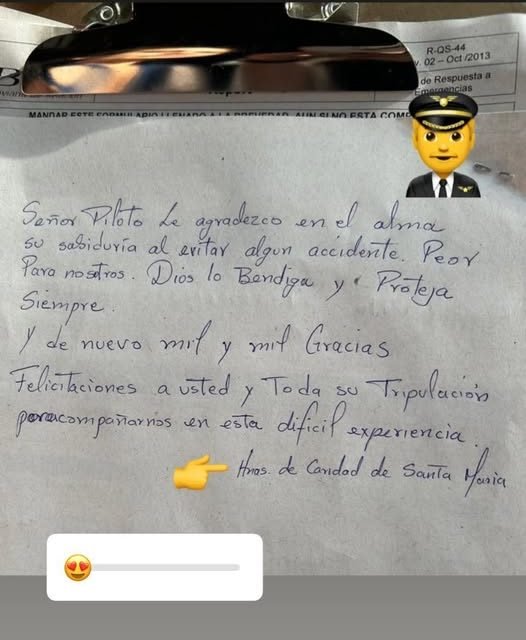 R-QS-44
v. 02 – Oct /2013
de Respuesta a
Emergencias
MANDAR ESTE FORMULARIO LLENADO A LA BREVEDAD, AUN SI NO ESTA COMP
Señor Piloto Le agradezco en el alma
su sabiduría al evitar algun accidente. Peor
Para nosotros. Dios lo Bendiga y Proteja
Siempre.
Y de nuevo mil y mil Gracias
Felicitaciones a usted y Toda su Tripulación
por acompañarnos en esta dificil experiencia.
Hnas. de Caridad de Santa Maria